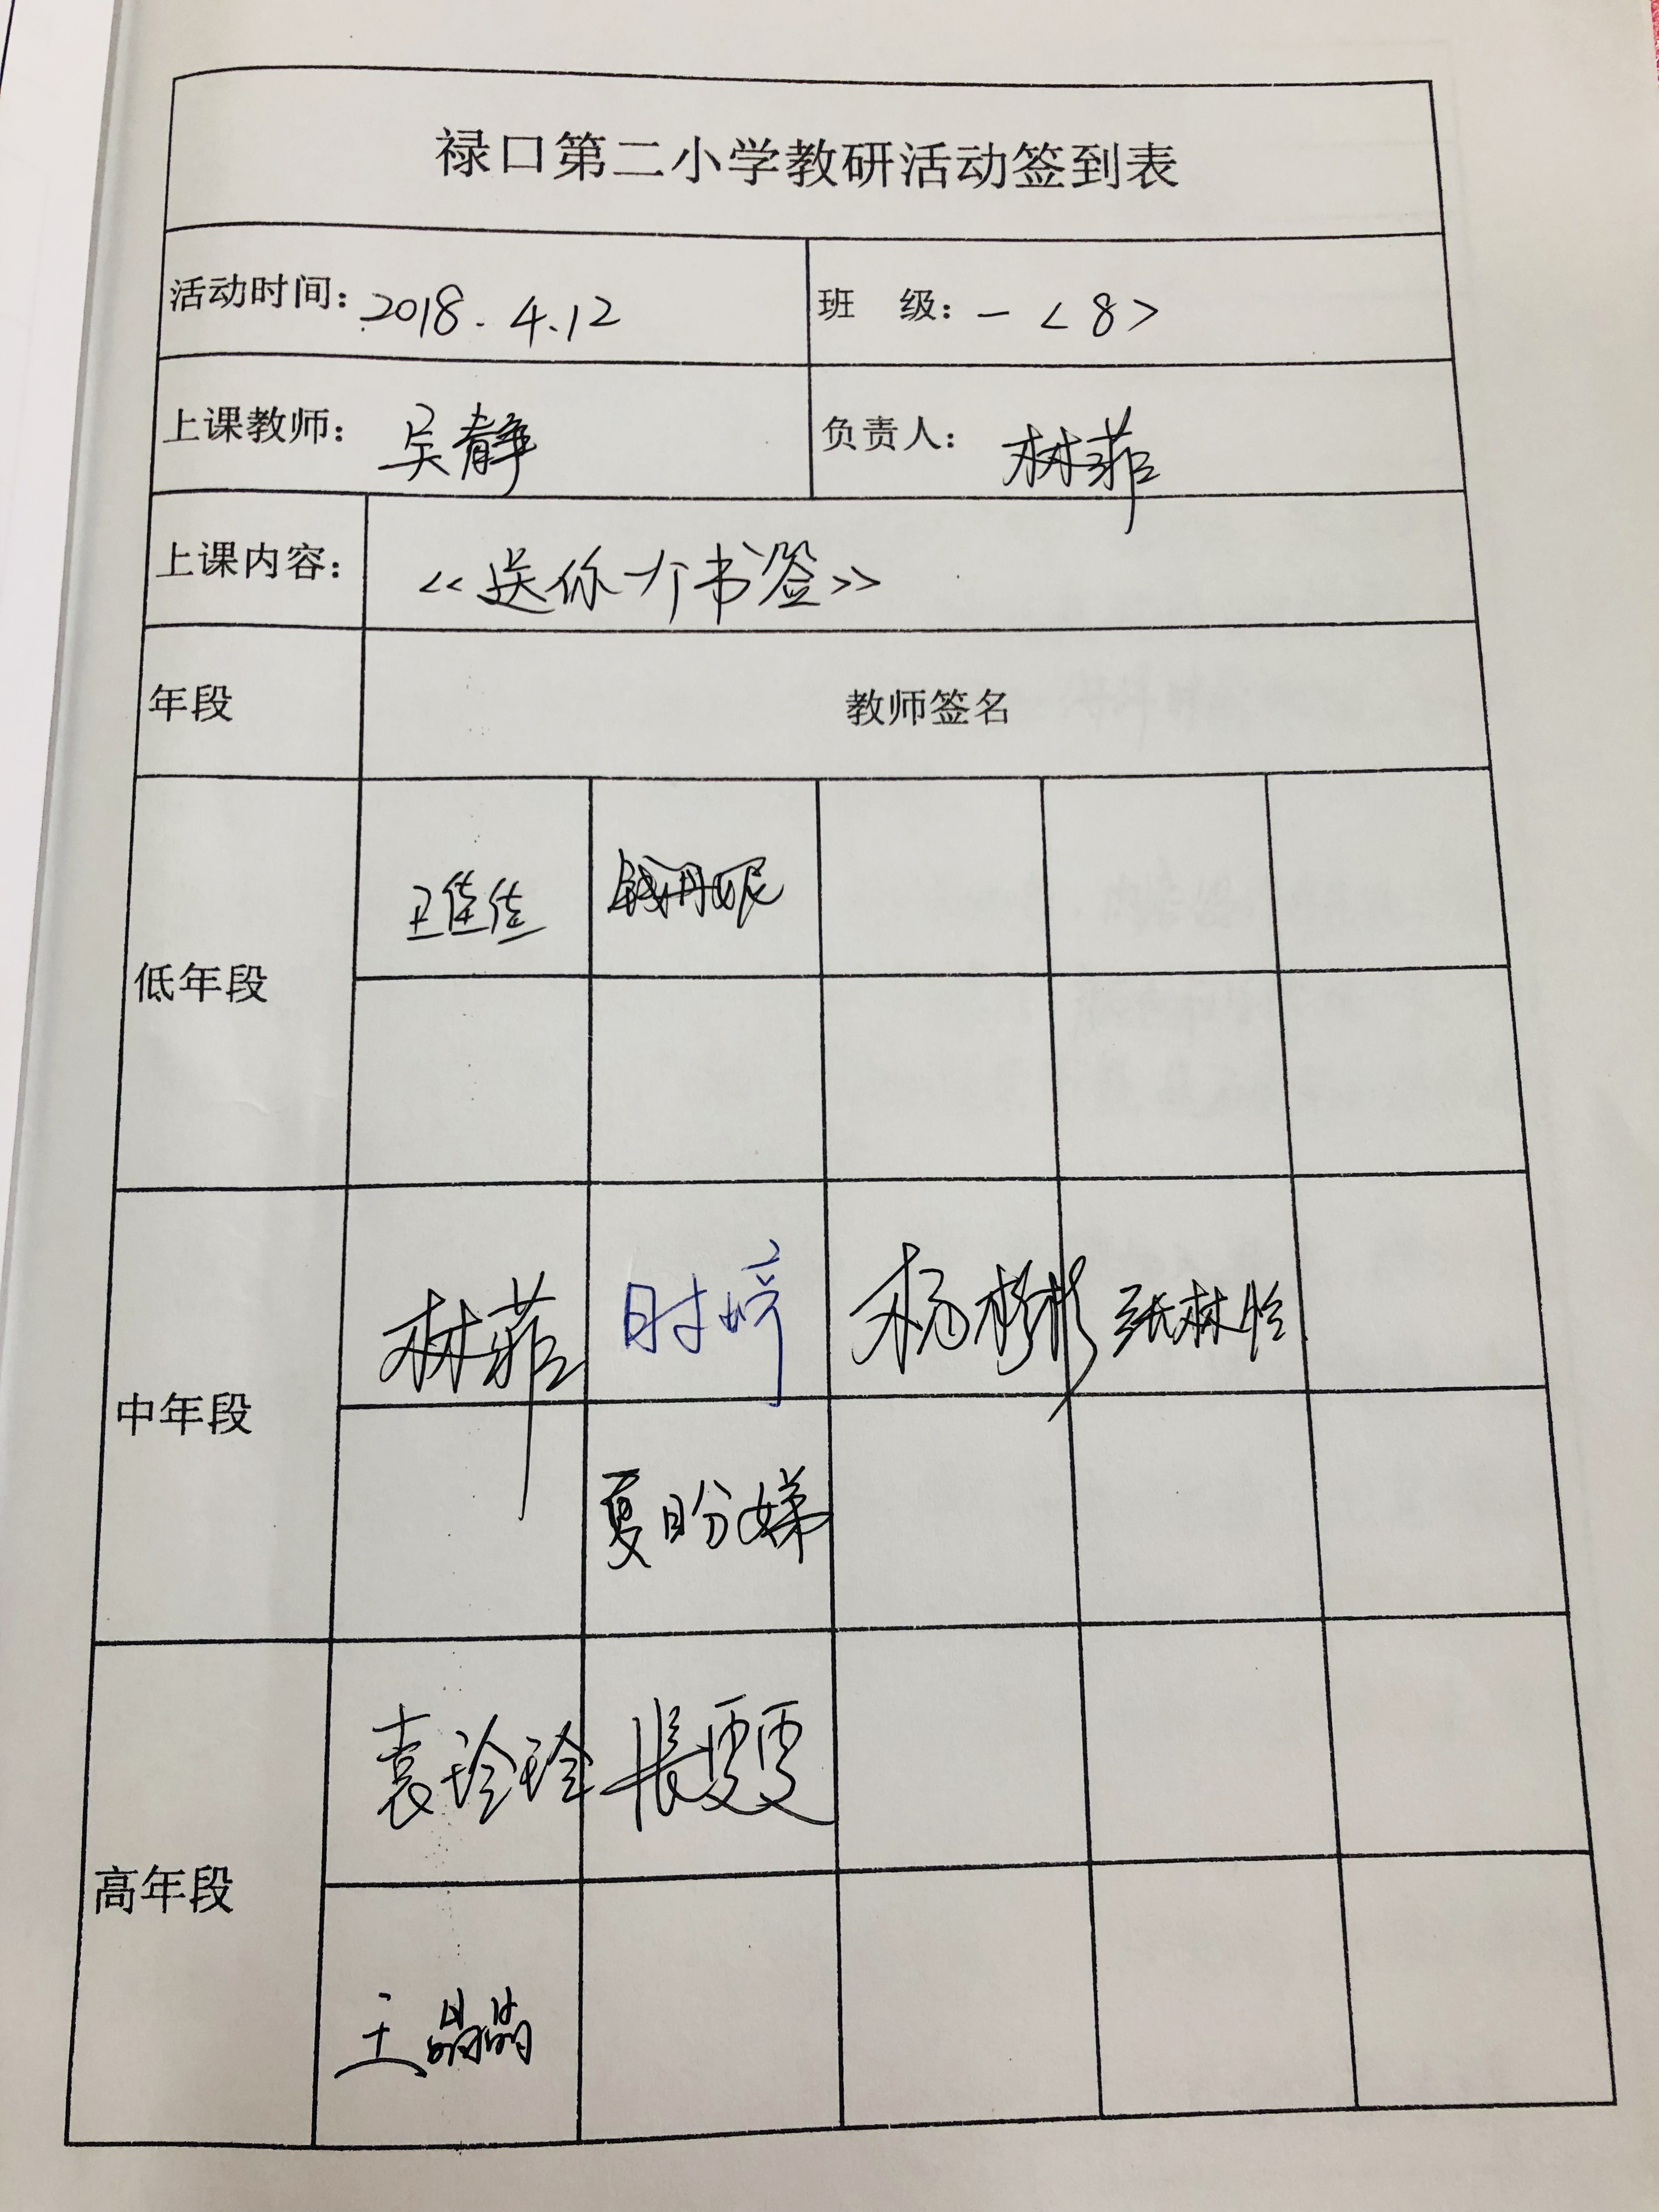 禄口第二小学教研活动签到表
活动时间：2018.4.12 班 级：一<8>
上课教师：吴静 负责人：林菲
上课内容：<<送你一个书签>>
年段 教师签名
低年段
卫佳佳 钱丹妮
中年段
林菲 时婷 杨彬彬 张林怡
夏盼娣
高年段
袁玲玲 张雯雯
王晶晶